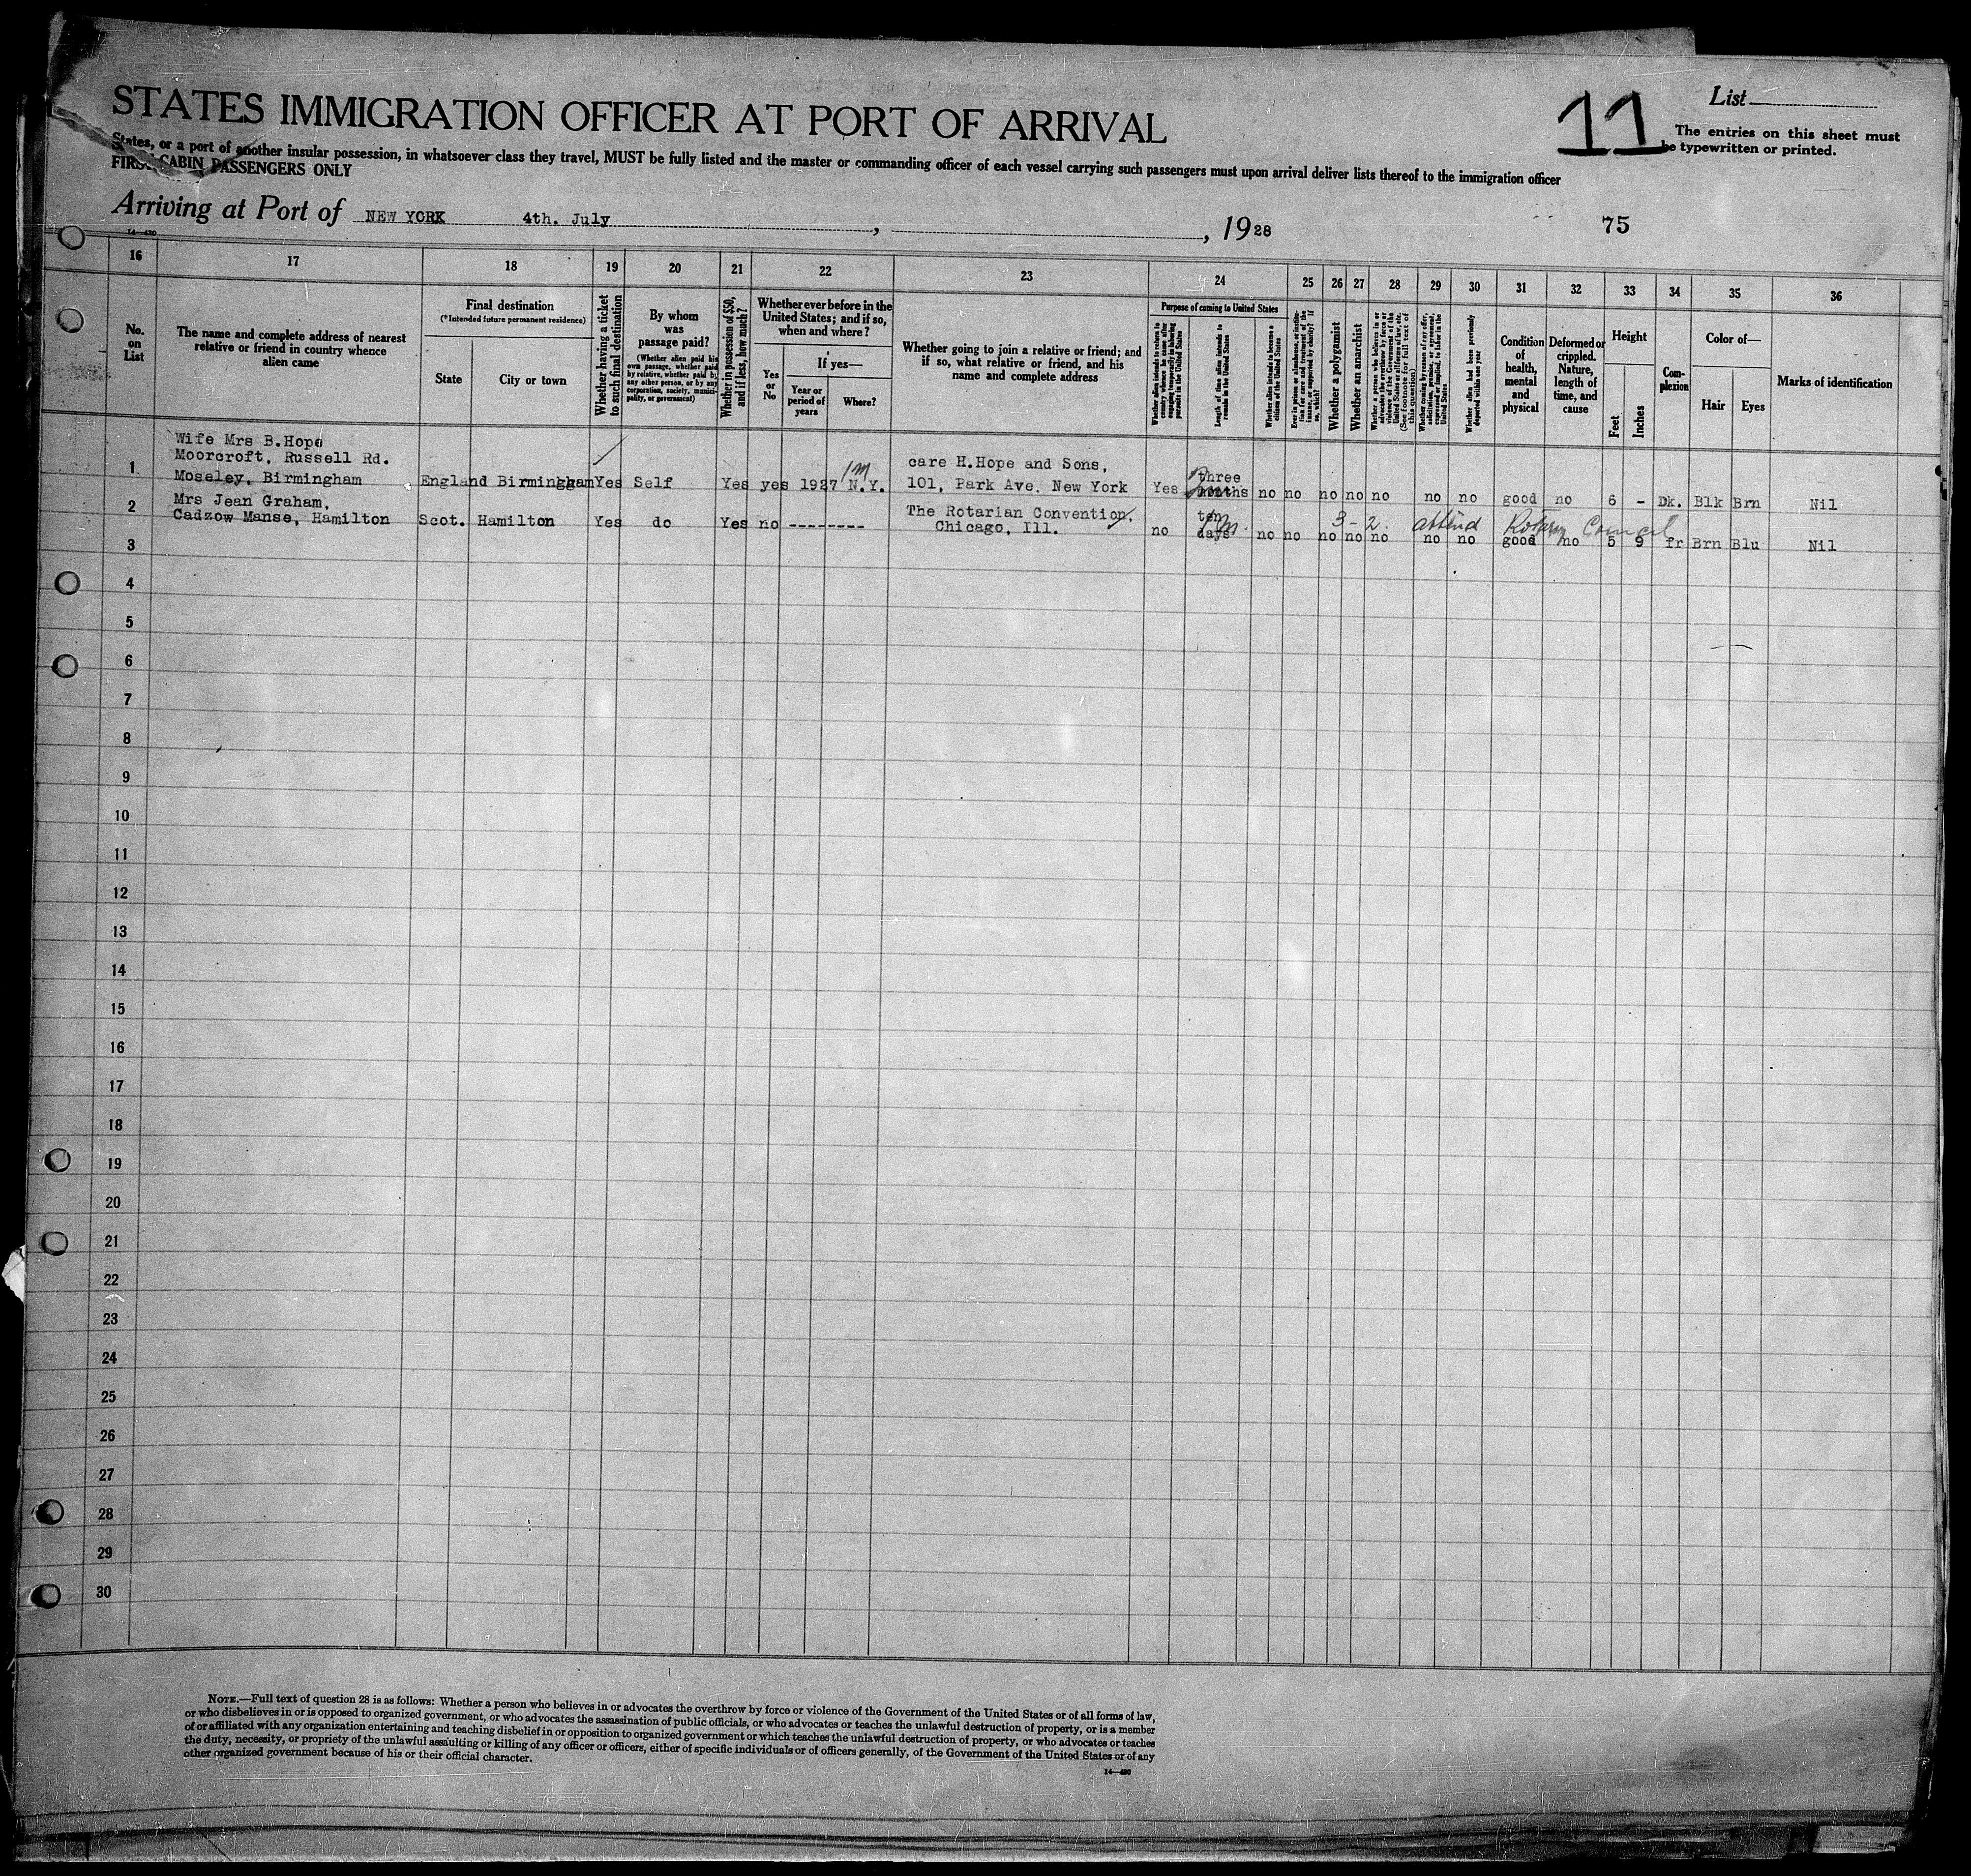 STATES IMMIGRATION OFFICER AT PORT OF ARRIVAL
11
List
The entries on this sheet must
be typewritten or printed.
States, or a port of another insular possession, in whatsoever class they travel, MUST be fully listed and the master or commanding officer of each vessel carrying such passengers must upon arrival deliver lists thereof to the immigration officer
FIRST CABIN PASSENGERS ONLY
Arriving at Port of NEW YORK 4th. July , , 1928
75
14—430
16 17 18 19 20 21 22 23 24 25 26 27 28 29 30 31 32 33 34 35 36
No.
on
List
The name and complete address of nearest
relative or friend in country whence
alien came
Final destination
(*Intended future permanent residence)
State
City or town
Whether having a ticket
to such final destination
By whom
was
passage paid?
(Whether alien paid his
own passage, whether paid
by relative, whether paid by
any other person, or by any
corporation, society, munici-
pality, or government)
Whether in possession of $50,
and if less, how much?
Whether ever before in the
United States; and if so,
when and where?
Yes
or
No
If yes—
Year or
period of
years
Where?
Whether going to join a relative or friend; and
if so, what relative or friend, and his
name and complete address
Purpose of coming to United States
Whether alien intends to return to
country whence he came after
engaging temporarily in laboring
pursuits in the United States
Length of time alien intends to
remain in the United States
Whether alien intends to become a
citizen of the United States
Ever in prison or almshouse, or institu-
tion for care and treatment of the
insane, or supported by charity? If
so, which?
Whether a polygamist
Whether an anarchist
Whether a person who believes in or
advocates the overthrow by force or
violence of the Government of the
United States or all forms of law, etc.
(See footnote for full text of
this question)
Whether coming by reason of any offer,
solicitation, promise, or agreement,
expressed or implied, to labor in the
United States
Whether alien had been previously
deported within one year
Condition
of
health,
mental
and
physical
Deformed or
crippled.
Nature,
length of
time, and
cause
Height
Feet
Inches
Com-
plexion
Color of—
Hair
Eyes
Marks of identification
Wife Mrs B.Hope
Moorcroft, Russell Rd.
1 Moseley, Birmingham England Birmingham Yes Self Yes yes 1927 1m N.Y. care H.Hope and Sons,
101, Park Ave. New York Yes three
months no no no no no no no good no 6 - Dk. Blk Brn Nil
2 Mrs Jean Graham,
Cadzow Manse, Hamilton Scot. Hamilton Yes do Yes no -------- The Rotarian Convention,
Chicago, Ill. no ten
days no no no no no no no good no 5 9 fr Brn Blu Nil
3-2. attend Rotary Council
3
4
5
6
7
8
9
10
11
12
13
14
15
16
17
18
19
20
21
22
23
24
25
26
27
28
29
30
NOTE.—Full text of question 28 is as follows: Whether a person who believes in or advocates the overthrow by force or violence of the Government of the United States or of all forms of law,
or who disbelieves in or is opposed to organized government, or who advocates the assassination of public officials, or who advocates or teaches the unlawful destruction of property, or is a member
of or affiliated with any organization entertaining and teaching disbelief in or opposition to organized government or which teaches the unlawful destruction of property, or who advocates or teaches
the duty, necessity, or propriety of the unlawful assaulting or killing of any officer or officers, either of specific individuals or of officers generally, of the Government of the United States or of any
other organized government because of his or their official character.
14—430